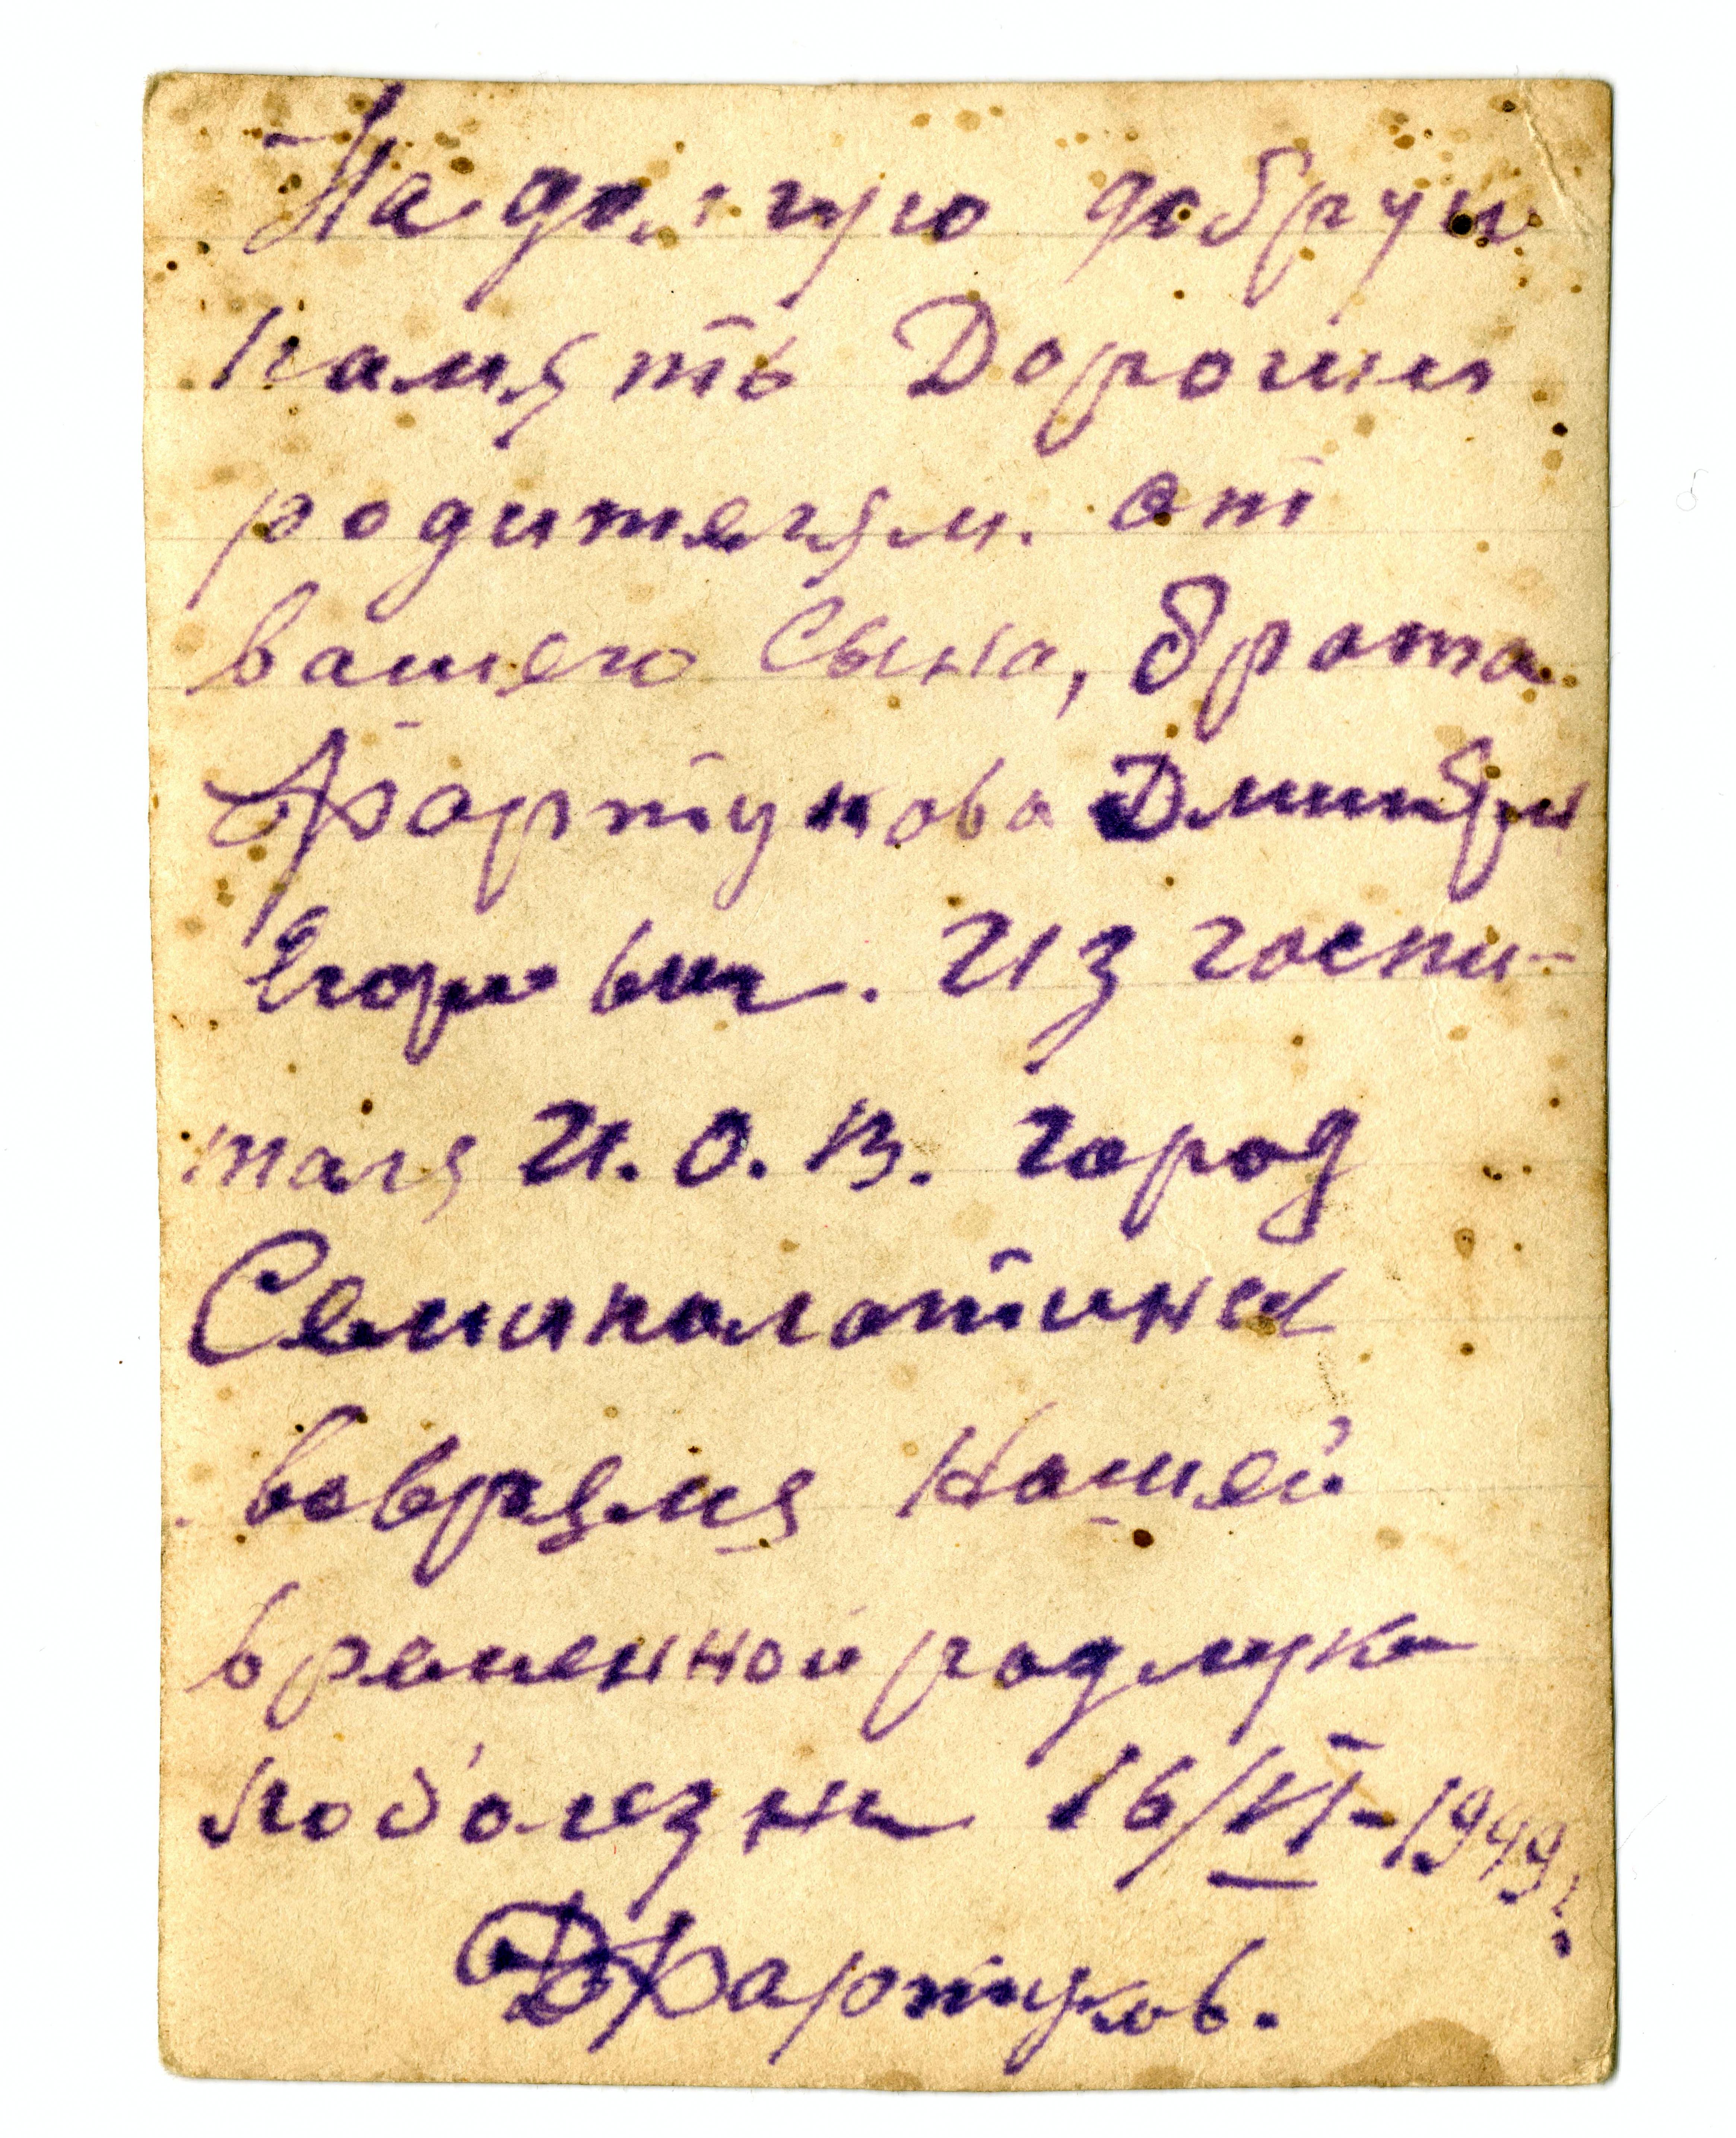 На долгую добрую
память Дорогим
родителям. от
вашего Сына, брата
Фортунова Дмитри
Егорович. Из госпи-
таля И.О.В. город
Семиполатинск
вовремя Нашей
временной радлуки
поболезни 16/VI-1949г.
ДФартунов.